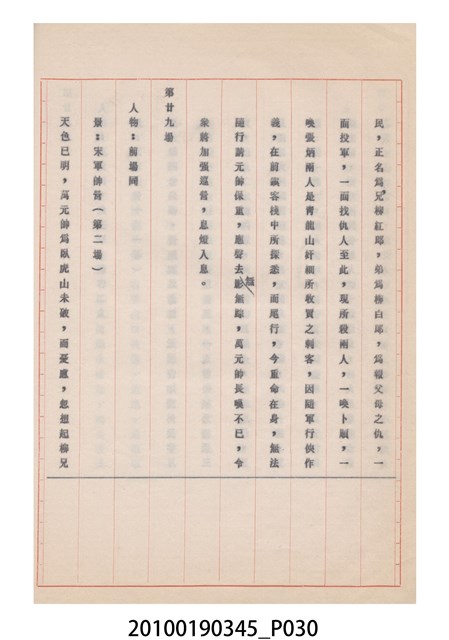 民，正名爲，兄柳紅郎，弟爲柳白郎，爲報父母之仇，一
面投軍，一面找仇人至此，現所殺兩人，一喚卜順，一
喚張炳兩人是青龍山奸細所收買之刺客，因隨軍行俠作
義，在前飯客棧中所探悉，而尾行，今重命在身，無法
隨行請元帥保重，應聲去影無踪，萬元帥長嘆不已，令
衆將加强巡營，息燈入息。
第廿九場
人物：前場同
景：宋軍帥營（第二場）
天色已明，萬元帥爲臥虎山未破，而憂慮，忽想起柳兄
20100190345_P030